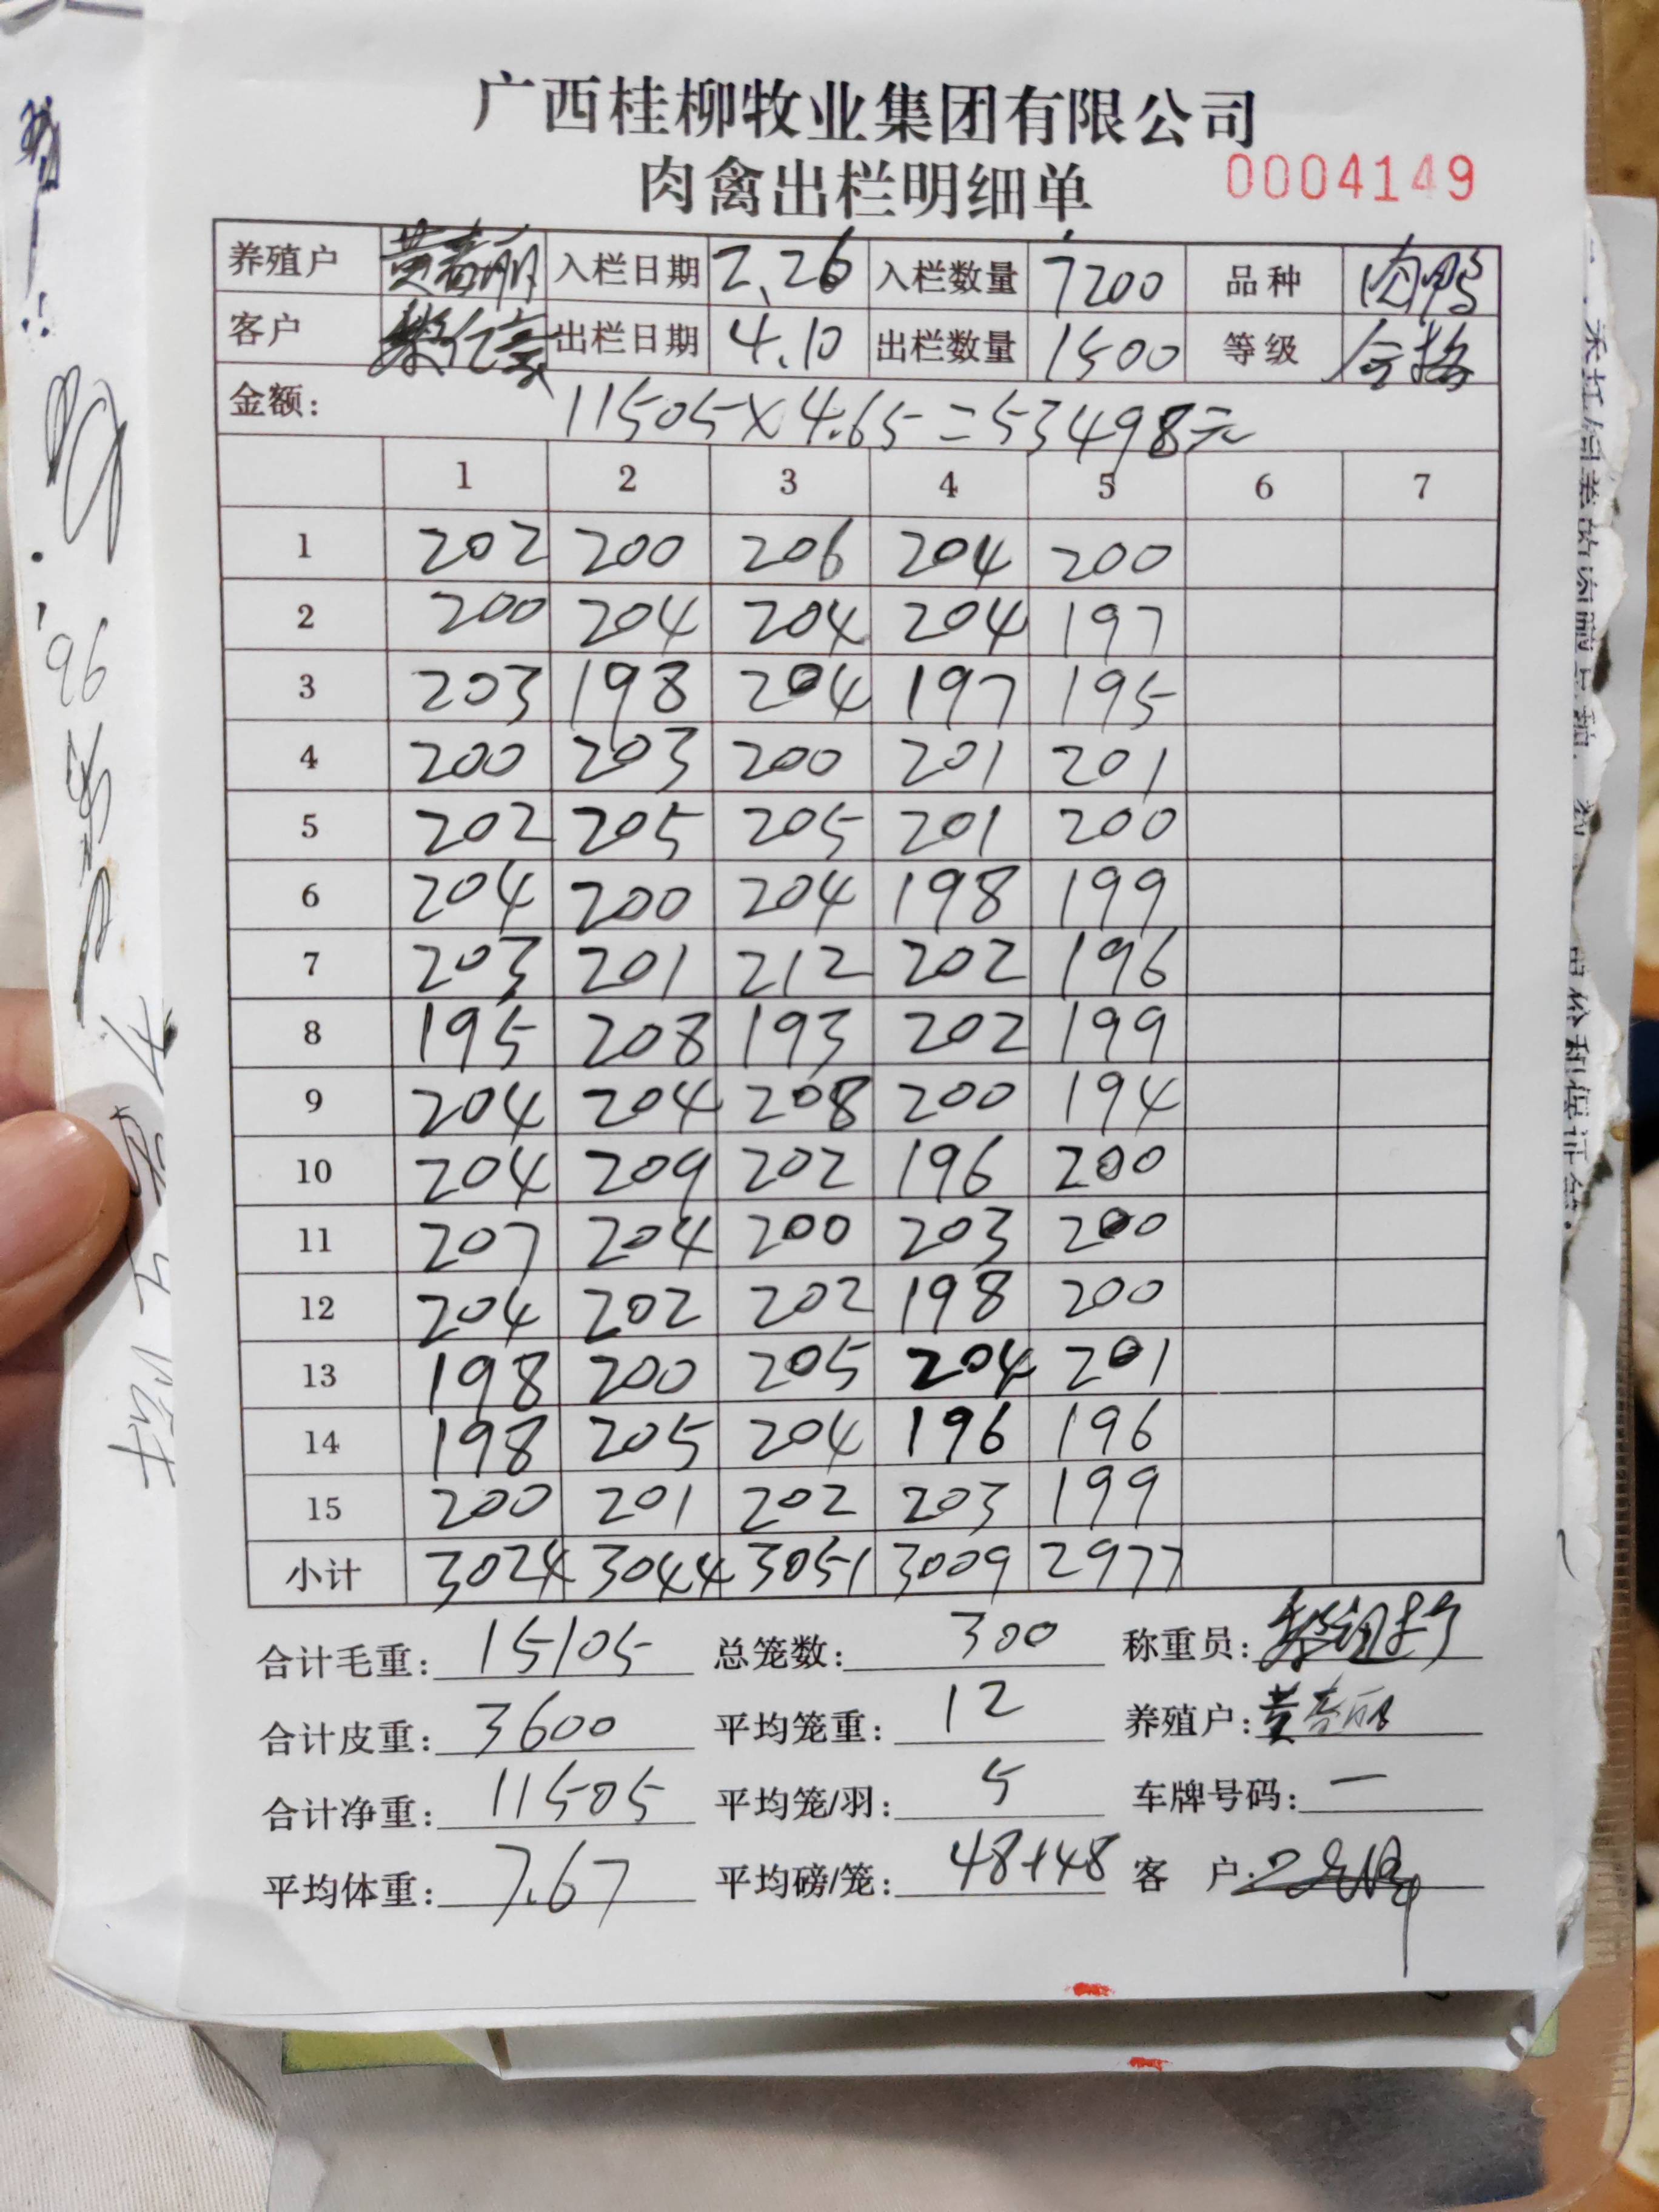 广西桂柳牧业集团有限公司
肉禽出栏明细单 0004149
养殖户 入栏日期 2.26 入栏数量 7200 品种 肉鸭
客户 出栏日期 4.10 出栏数量 1500 等级 合格
金额: 11505×4.65=53498元
1 2 3 4 5 6 7
1 202 200 206 204 200
2 200 204 204 204 197
3 203 198 204 197 195
4 200 203 200 201 201
5 202 205 205 201 200
6 204 200 204 198 199
7 203 201 212 202 196
8 195 208 193 202 199
9 204 204 208 200 194
10 204 209 202 196 200
11 207 204 200 203 200
12 204 202 202 198 200
13 198 200 205 204 201
14 198 205 204 196 196
15 200 201 202 203 199
小计 3024 3044 3051 3009 2977
合计毛重: 15105 总笼数: 300 称重员:
合计皮重: 3600 平均笼重: 12 养殖户:
合计净重: 11505 平均笼/羽: 5 车牌号码: —
平均体重: 7.67 平均磅/笼: 48+48 客 户: